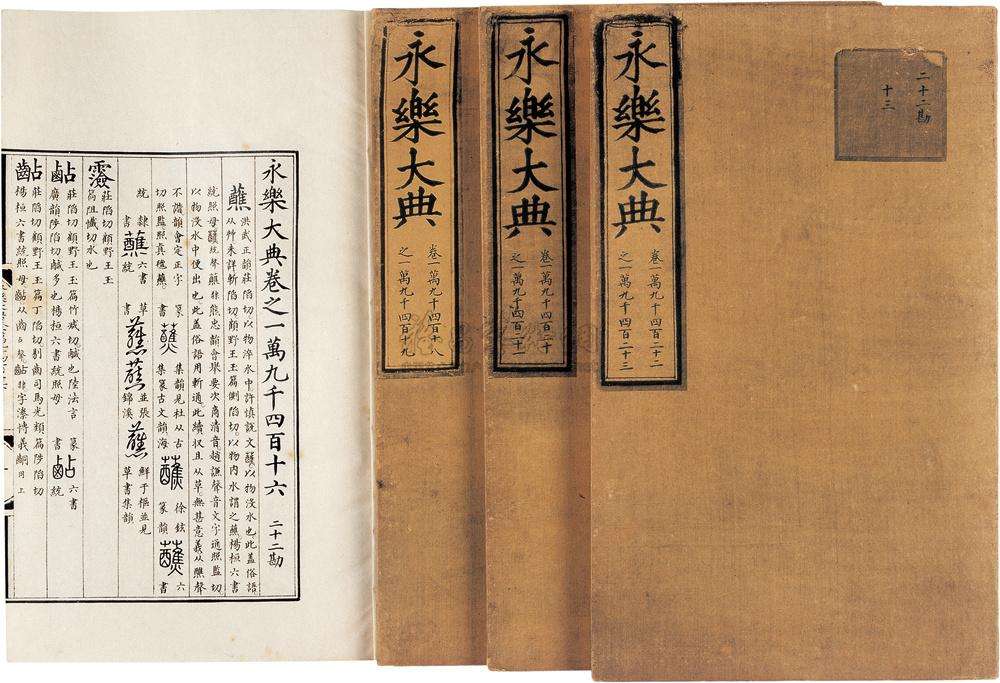 二十二勘
十三
永樂大典
卷一萬九千四百二十二
之一萬九千四百二十三
永樂大典
卷一萬九千四百二十
之一萬九千四百二十一
永樂大典
卷一萬九千四百十八
之一萬九千四百十九
永樂大典卷之一萬九千四百十六 二十二勘
蘸
洪武正韻莊陷切以物淬水中許慎説文醮以物沒水也此蓋俗語
从艸未詳斬陷切顧野王玉篇側陷切以物内水謂之蘸楊桓六書
統照母醮聲蘸非熊忠韻會舉要次商清音趙謙聲音文字通照監切
以物沒水中使出也此蓋俗語用斬適此續収且从草無甚意義从醮聲
不諧韻會定正字
切照監照真蘸
篆書 蘸 集韻見杜从古集篆古文韻海 蘸 徐鉉篆韻 蘸 六書
統 隸書 蘸 六書統 草書 蘸蘸 並張錦溪 蘸 鮮于樞並見草書集韻
莊陷切顧野王玉
篇阻懺切水也
莊陷切顧野王玉篇竹咸切鹹也陸法言
廣韻陟陷切鹹多也楊桓六書統照母
篆書 六書統
莊陷切顧野王玉篇丁陷切剔齒司馬光類篇陟陷切
楊桓六書統照母从齒占聲非字潫博義同上